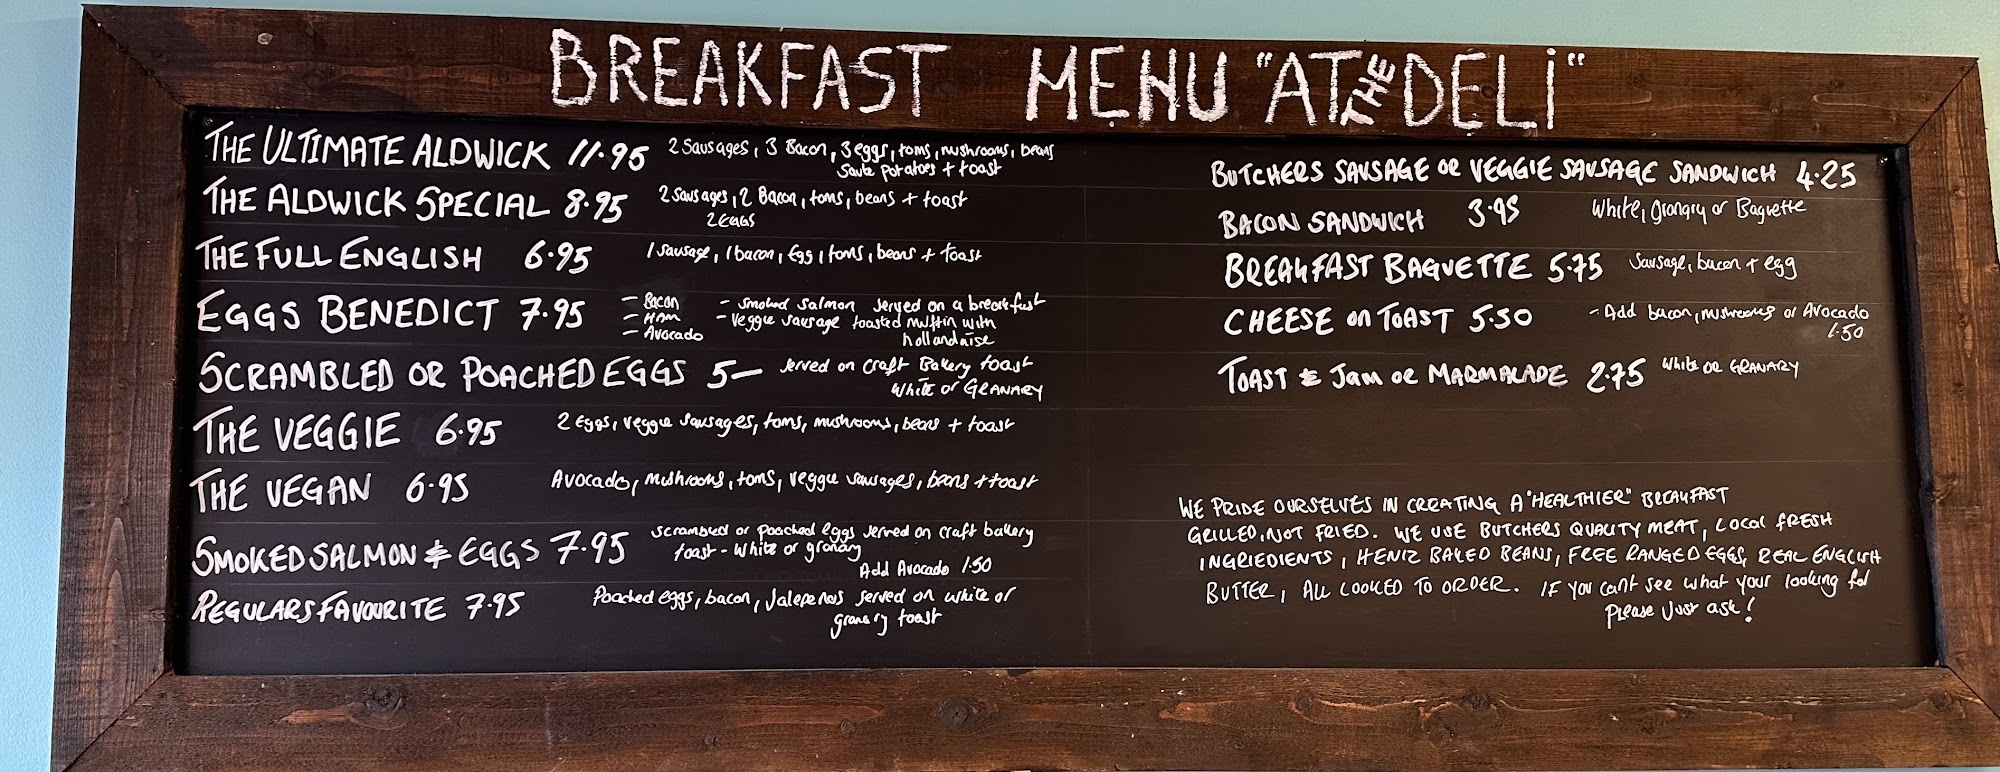 BREAKFAST MENU "AT THE DELI"
THE ULTIMATE ALDWICK 11.95 2 Sausages, 3 Bacon, 3 eggs, toms, mushrooms, beans
Saute Potatoes + toast
THE ALDWICK SPECIAL 8.95 2 Sausages, 2 Bacon, toms, beans + toast
2 EGGS
THE FULL ENGLISH 6.95 1 Sausage, 1 bacon, Egg, toms, beans + toast
EGGS BENEDICT 7.95 - Bacon - smoked salmon served on a breakfast
- HAM - Veggie sausage toasted muffin with
- Avocado hollandaise
SCRAMBLED OR POACHED EGGS 5- served on craft Bakery toast
White or GRANARY
THE VEGGIE 6.95 2 Eggs, veggie sausages, toms, mushrooms, beans + toast
THE VEGAN 6.95 Avocado, mushrooms, toms, veggie sausages, beans + toast
SMOKED SALMON & EGGS 7.95 scrambled or poached eggs served on craft bakery
toast - white or granary
Add Avocado 1.50
REGULARS FAVOURITE 7.95 Poached eggs, bacon, Jalepenos served on white or
granary toast
BUTCHERS SAUSAGE OR VEGGIE SAUSAGE SANDWICH 4.25
BACON SANDWICH 3.95 White, Grangry or Baguette
BREAKFAST BAGUETTE 5.75 Sausage, bacon + egg
CHEESE on TOAST 5.50 - Add bacon, mushrooms or Avocado
1.50
TOAST & Jam or MARMALADE 2.75 White OR GRANARY
WE PRIDE OURSELVES IN CREATING A "HEALTHIER" BREAKFAST
GRILLED, NOT FRIED. WE USE BUTCHERS QUALITY MEAT, LOCAL FRESH
INGRIEDIENTS, HENIZ BAKED BEANS, FREE RANGED EGGS, REAL ENGLISH
BUTTER, ALL COOKED TO ORDER. IF YOU CANT SEE WHAT YOUR looking for
Please Just ask!